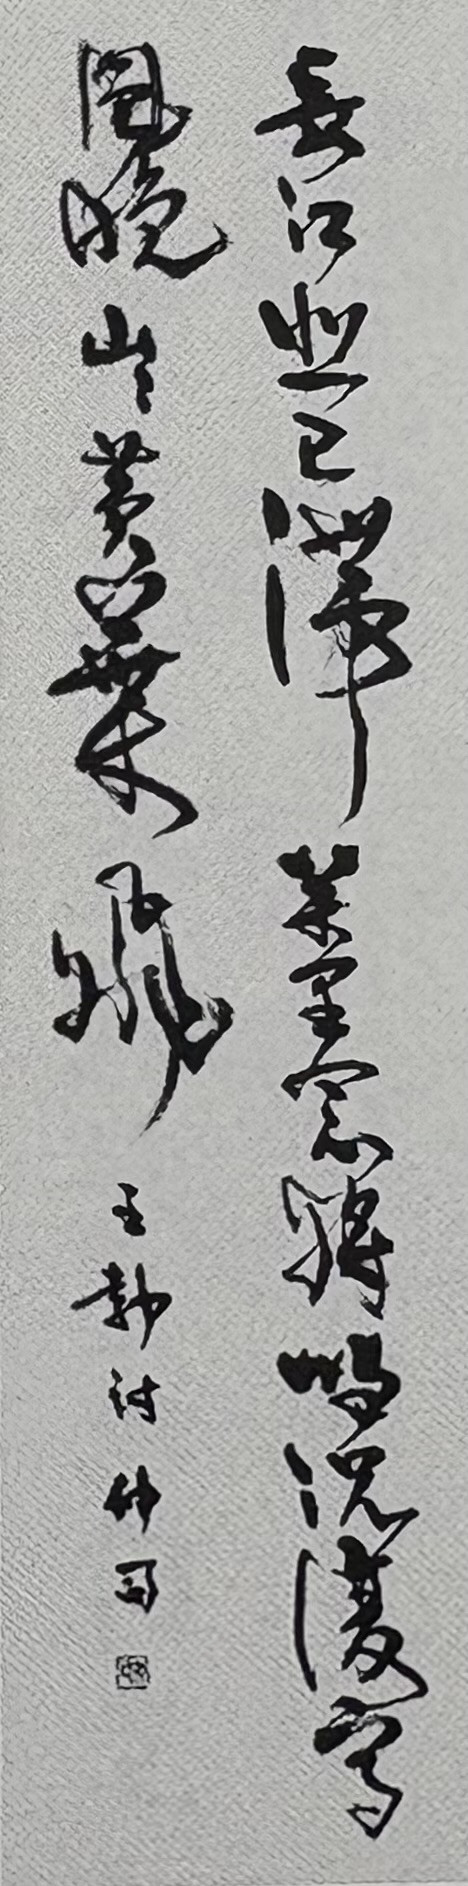 長江悲已滯萬里念將歸況復高
風晚山〻黃葉飛 王勃詩 仲